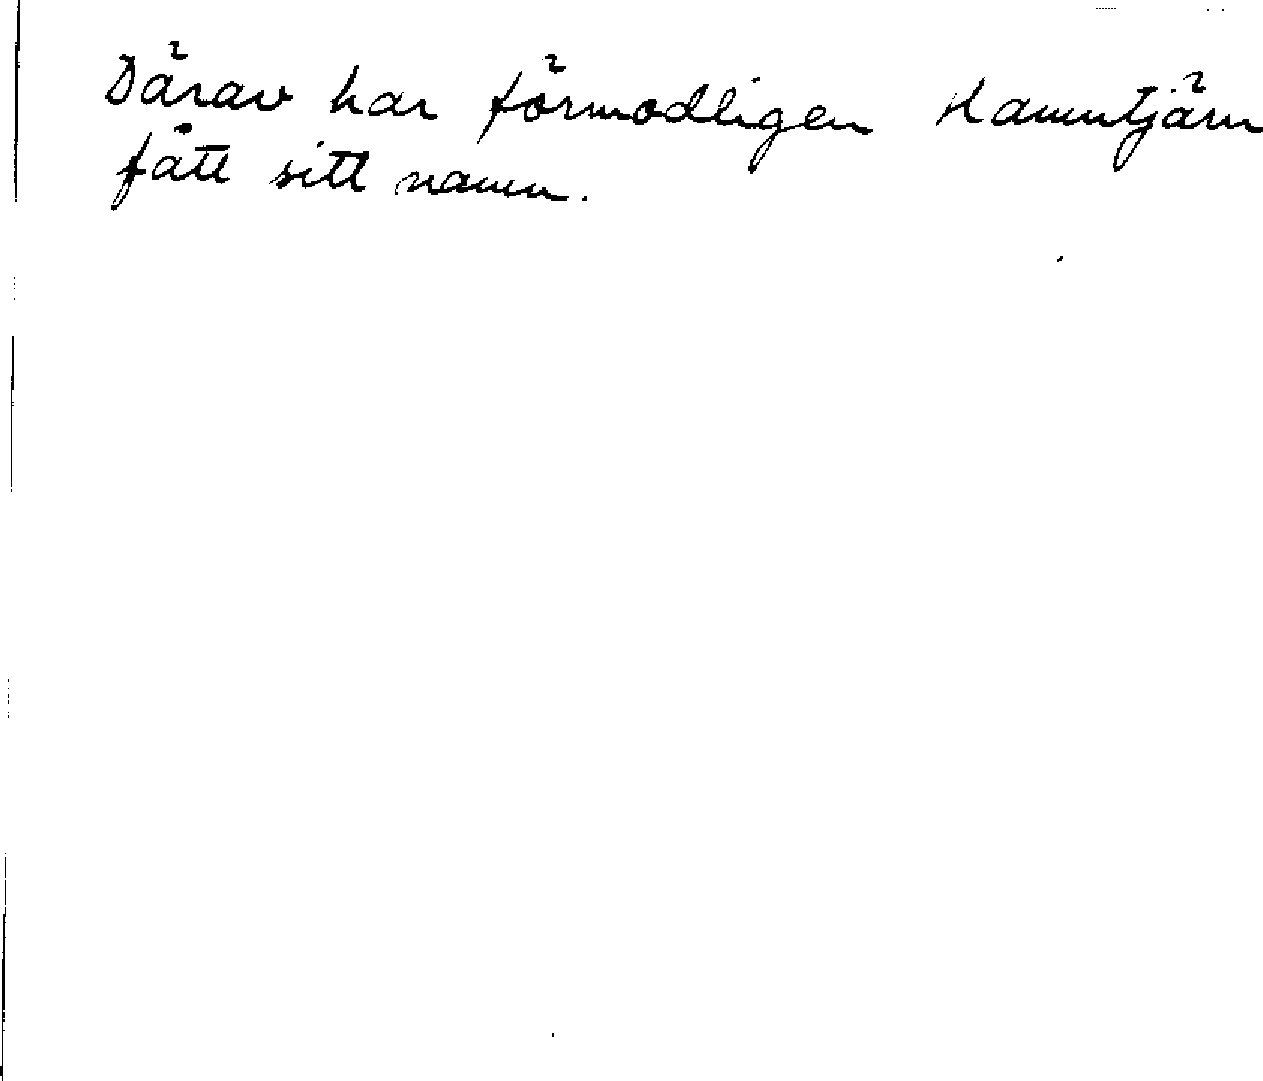 Därav har förmodligen Hamntjärn
fått sitt namn.